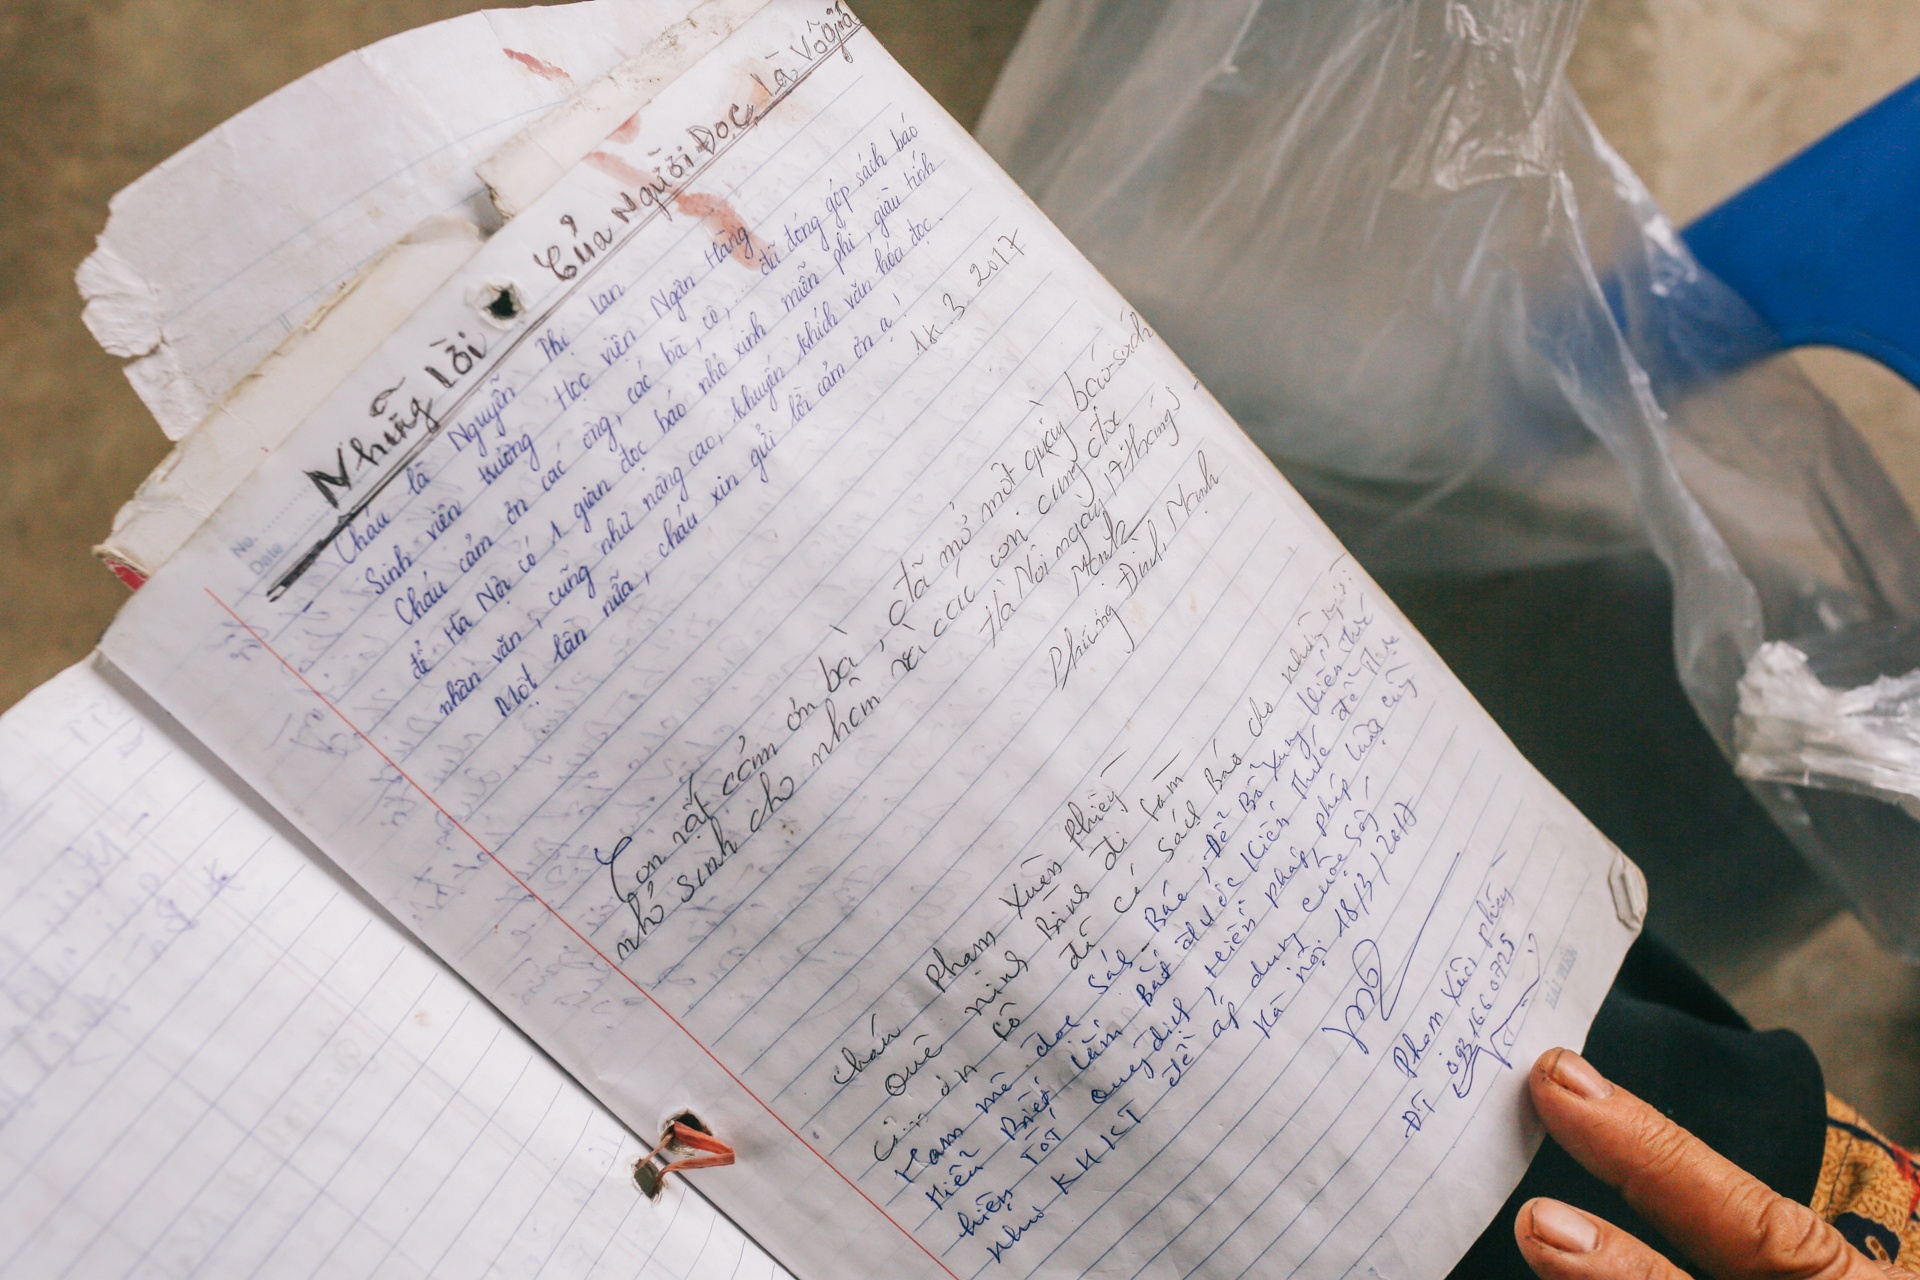 Những Lời Của Người Đọc Là Vô giá
No.
Date
Cháu là Nguyễn Thị Lan
Sinh viên trường Học viện Ngân Hàng
Cháu cảm ơn các ông, các bà, cô, ... đã đóng góp sách báo
để Hà Nội có 1 gian đọc báo nhỏ xinh miễn phí, giàu tính
nhân văn, cũng như nâng cao, khuyến khích văn hóa đọc.
Một lần nữa, cháu xin gửi lời cảm ơn ạ!
18.3.2017
Con rất cám ơn bà, đã mở một quầy báo-sách
nhỏ sinh cho nhâm và các con cung đọc
Hà Nội ngày 17 tháng 3
Mạnh
Phùng Đình Mạnh
cháu Phạm Xuân Phiếy
Quê ninh Bình đi làm
cảm ơn Cô đã có Sách Báo cho những người
Ham mê đọc Sách Báo, Để Bổ Xung kiến thức
Hiểu Biết Làm Bắt được Kiến thức để Thực
hiện Tốt Quy định, Hiến pháp, pháp luật cũng
Như KHKT để áp dụng cuộc Sống
Hà nội 18/3/2017
Phạm Xuân phiến
ĐT 0921660725
HẢI TIẾN